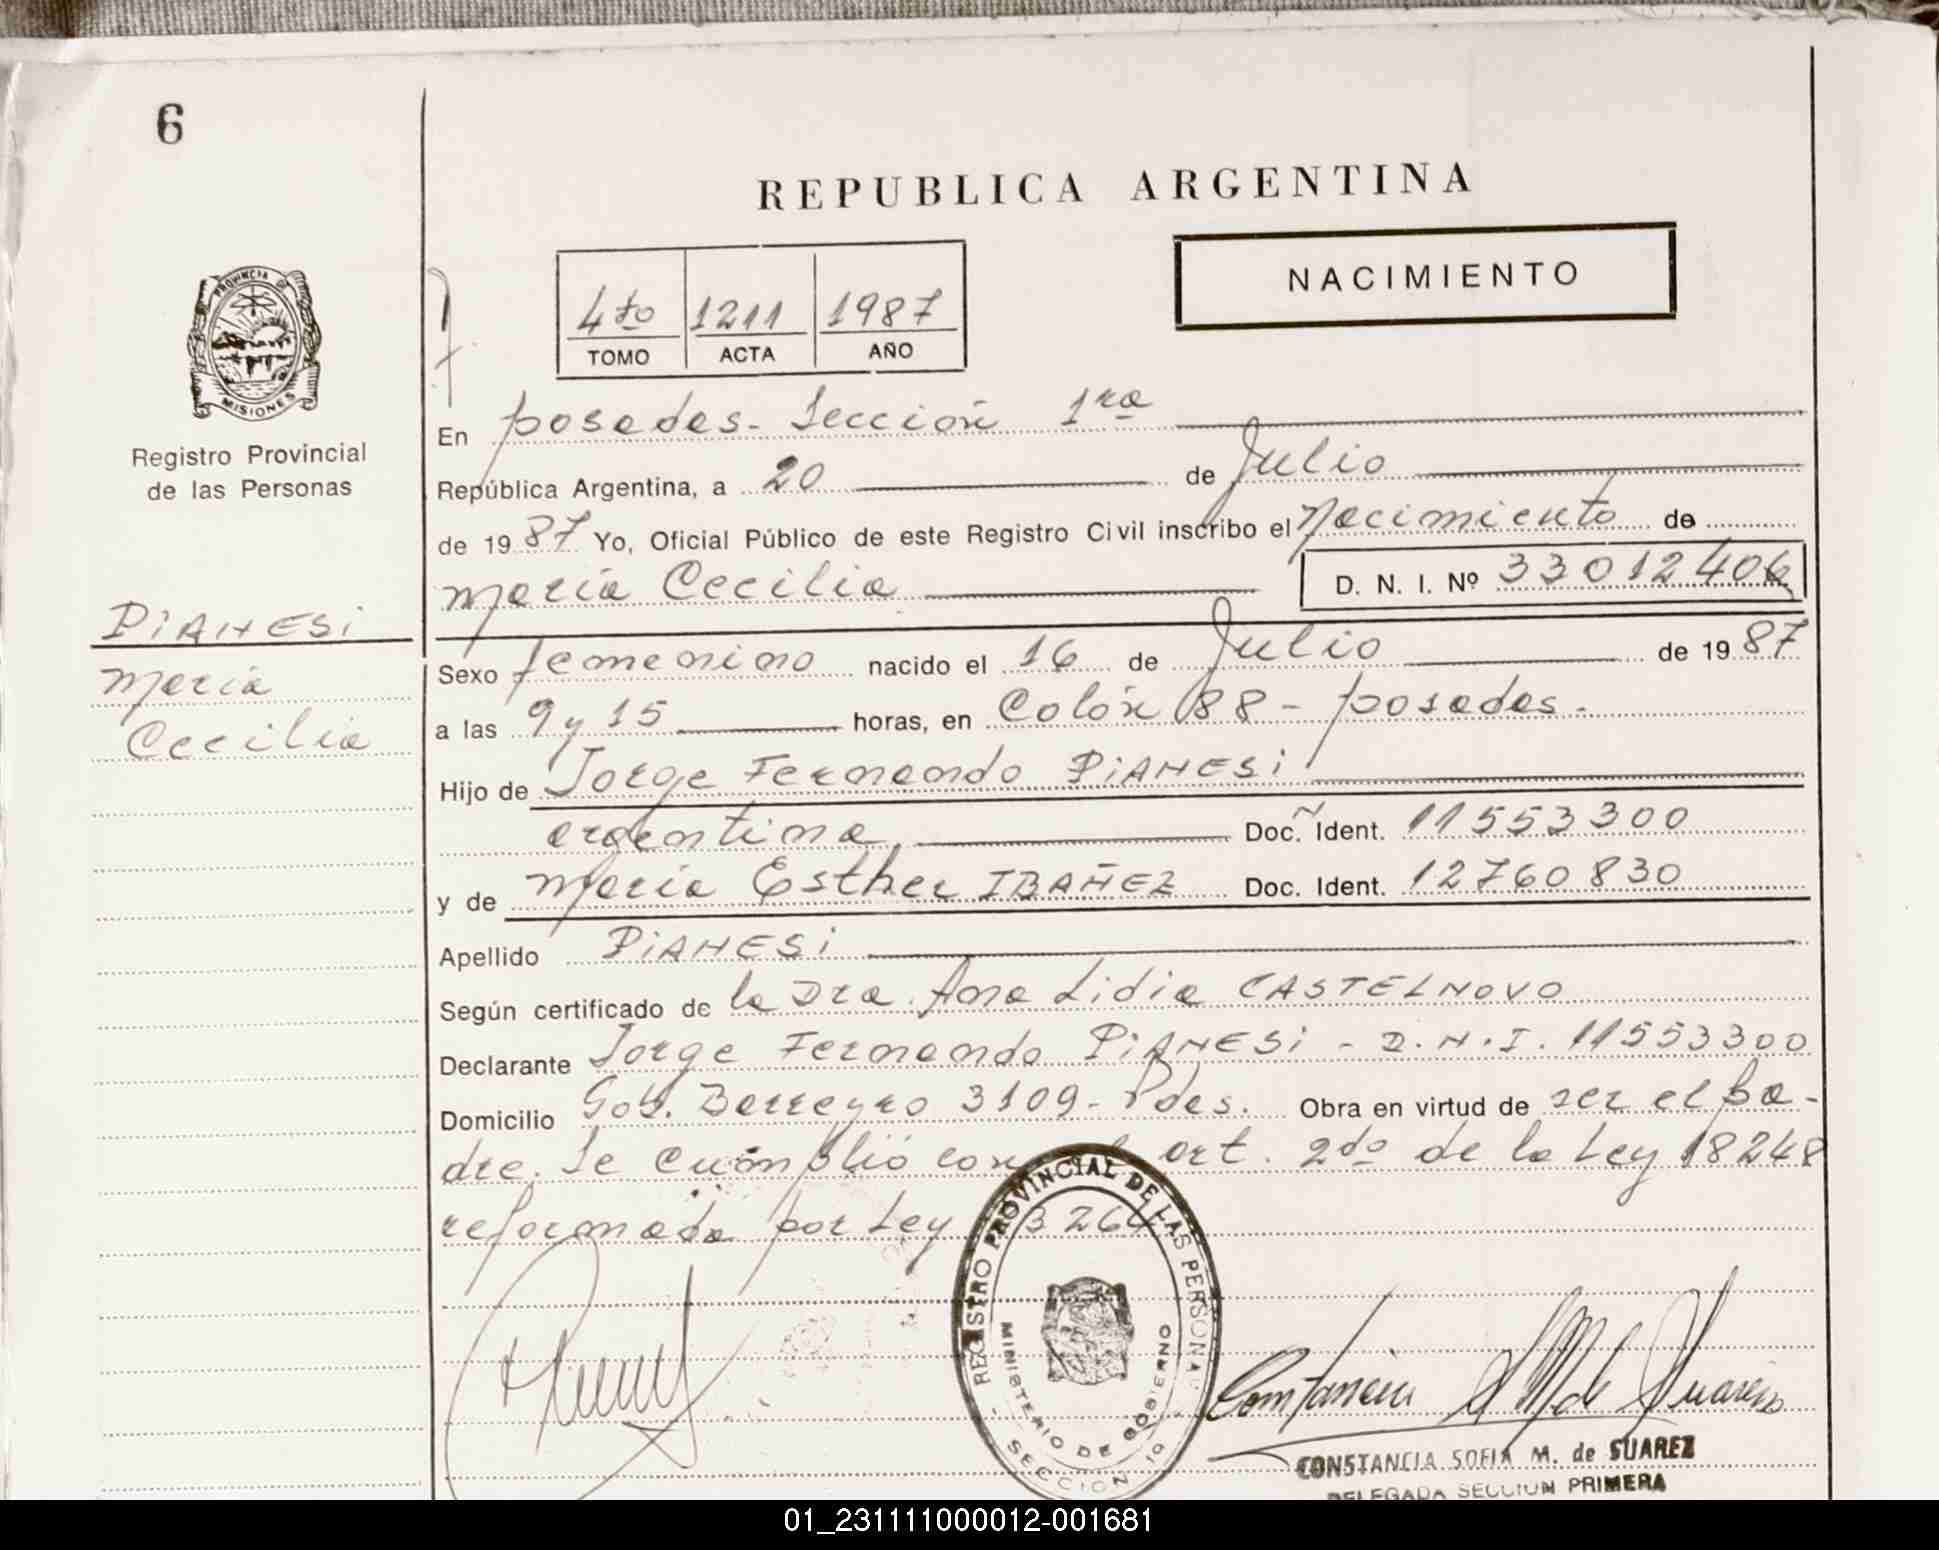 6
REPUBLICA ARGENTINA
NACIMIENTO
4to 1211 1987
TOMO ACTA AÑO
PROVINCIA DE
MISIONES
Registro Provincial
de las Personas
PIANESI
María
Cecilia
En posadas - Sección 1ra
República Argentina, a 20 de Julio
de 1987 Yo, Oficial Público de este Registro Civil inscribo el Nacimiento de
María Cecilia D. N. I. Nº 33012406
Sexo femenino nacido el 16 de Julio de 1987
a las 9 y 15 horas, en Colón 88 - posadas.
Hijo de Jorge Fernando PIANESI
argentina Doc. Ident. 11553300
y de María Esther IBAÑEZ Doc. Ident. 12760830
Apellido PIANESI
Según certificado de la Dra. Ana Lidia CASTELNOVO
Declarante Jorge Fernando PIANESI - D.N.I. 11553300
Domicilio Gob. Barreyro 3109 - Pdas. Obra en virtud de ser el pa-
dre. Se cumplió con art. 2do de la Ley 18248
reformada por Ley 3264
REGISTRO PROVINCIAL DE LAS PERSONAS
MINISTERIO DE GOBIERNO
SECCION 1º
Constancia S M de Suarez
CONSTANCIA SOFIA M. de SUAREZ
DELEGADA SECCION PRIMERA
01_231111000012-001681